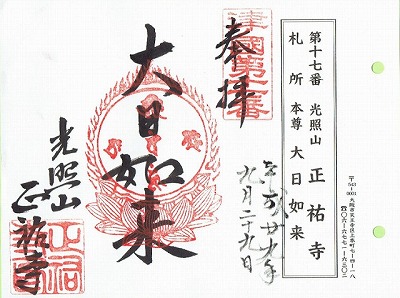 第十七番 光照山 正祐寺
札所 本尊 大日如来
〒543-0001 大阪市天王寺区上本町七-四-一八
☎〇六-六七七一-六三〇三
奉拝
平成廿九年
九月二十九日
大日如来
光照山
正祐寺